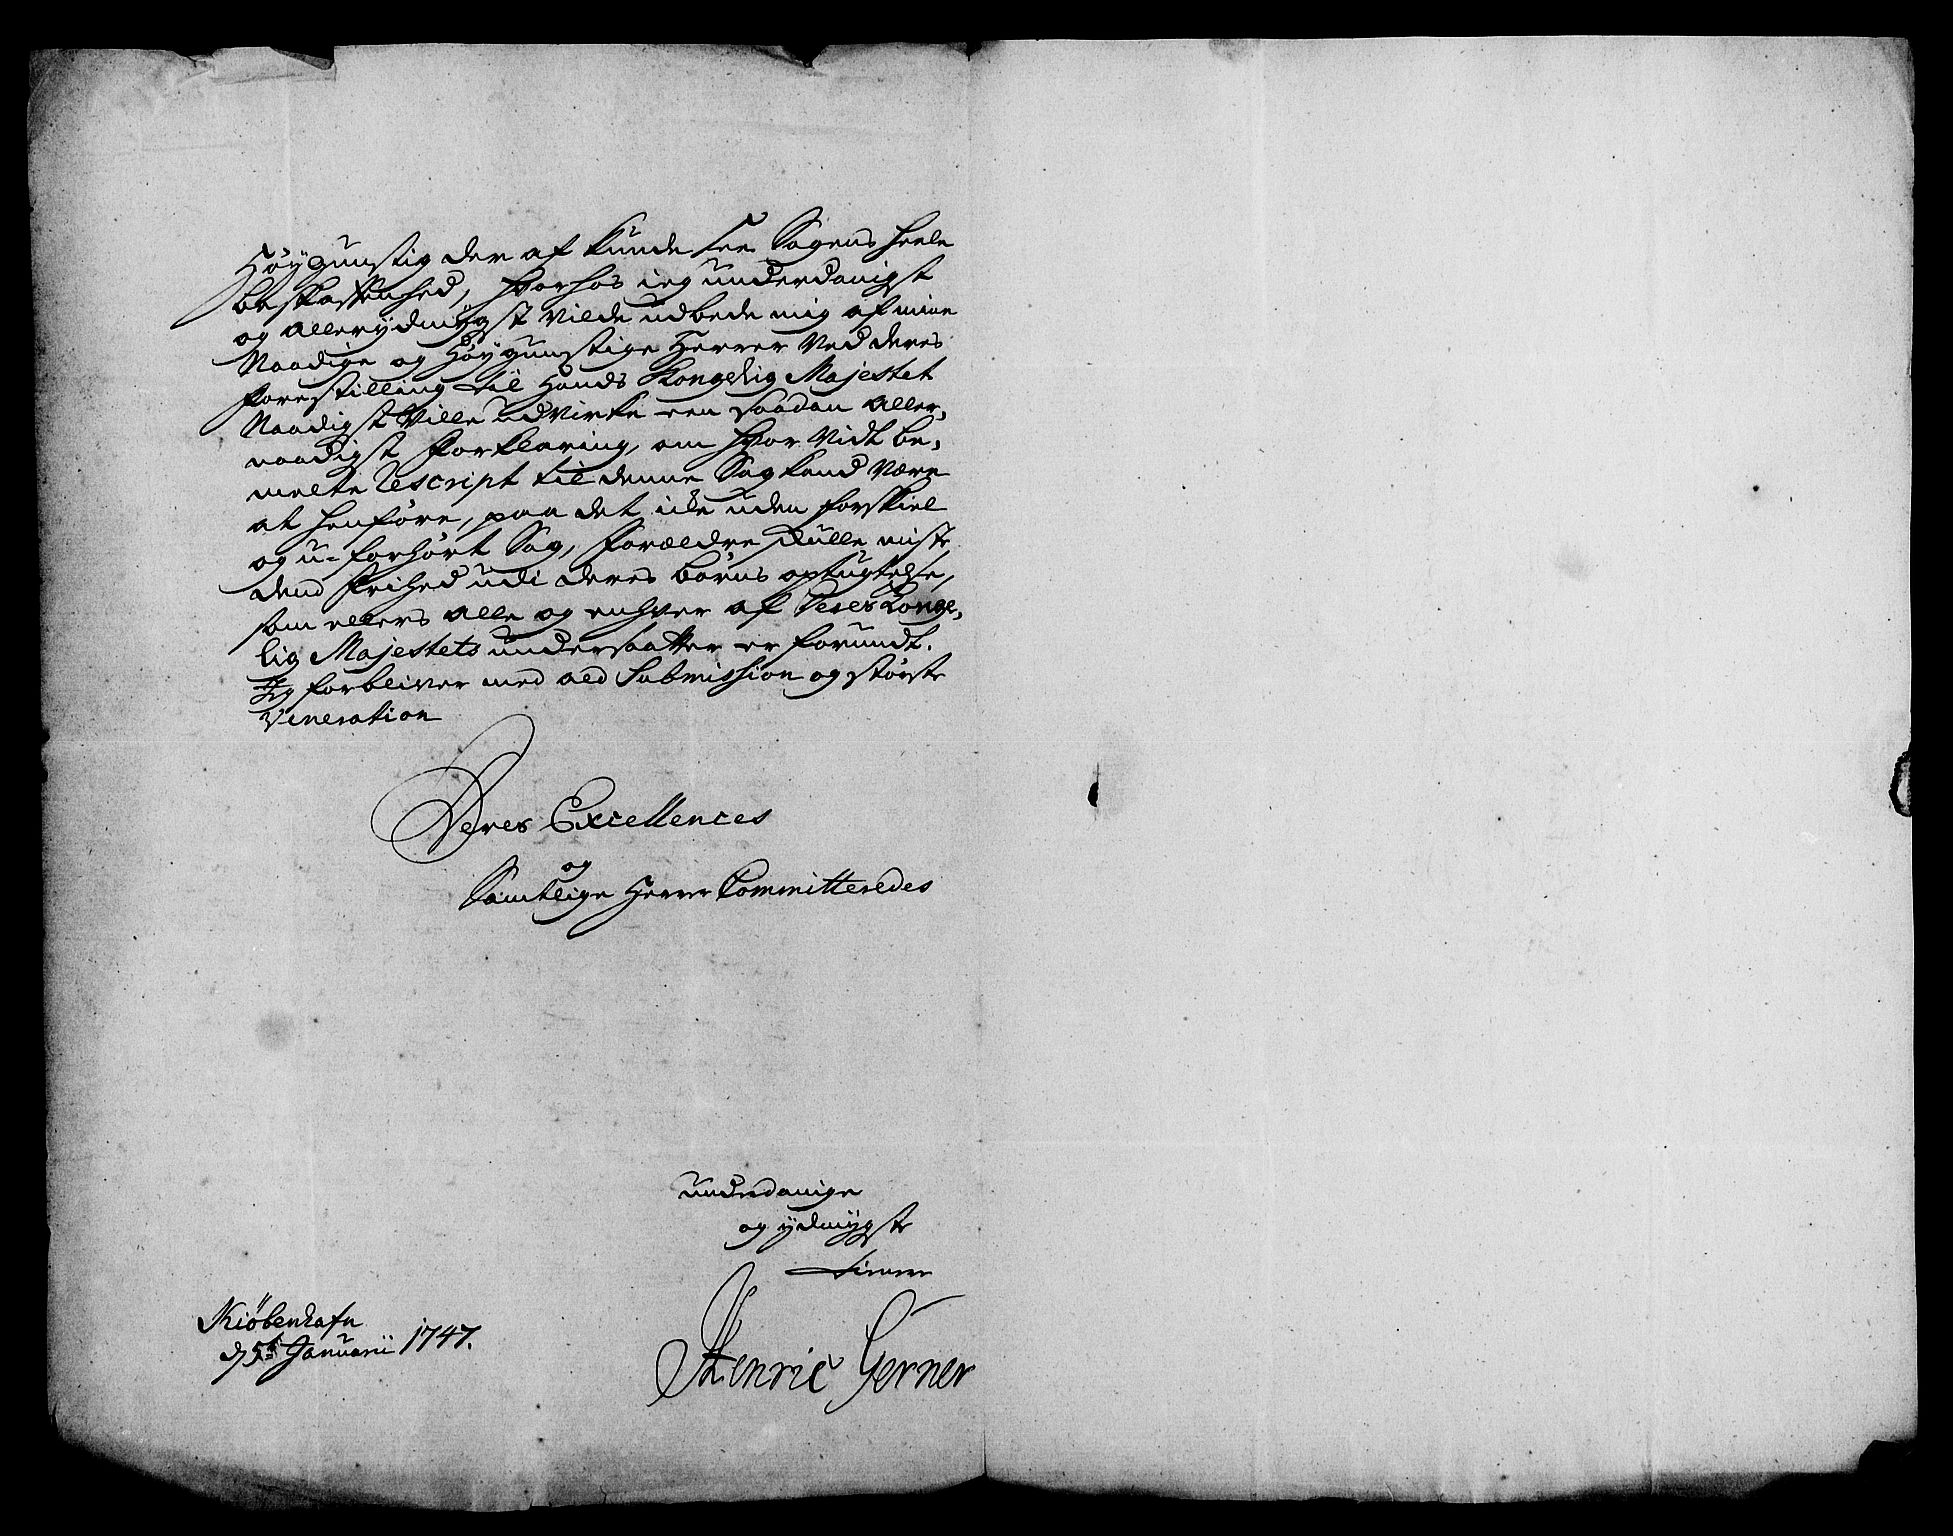 Høygunstig der af kunde see Sagens heele
beskaffenhed, hvorhos ieg underdanigst
og allerydmygst vilde udbede mig af mine
Naadige og Høygunstige Herrer ved deres
forestilling til Hands Kongelig Majestet
Naadigst ville udvirke een saadan aller,
naadigst forklaring, om hvor vidt be,
melte Rescript til denne Sag kand være
at henføre, paa det icke uden forskiel
og u-forhørt Sag, forældre skulle miste
dend frihed udi deres børns optugtelse,
som ellers alle og enhver af Deres Konge,
lig Majestets undersaatter er forundt.
Jeg forbliver med ald Submission og største
Veneration
Deres Excellences
og
Samtlige Herrer Committeredes
underdanige
og ydmygste
tienere
Henric Gerner
Kiöbenhafn
d 5t Januarii 1747.